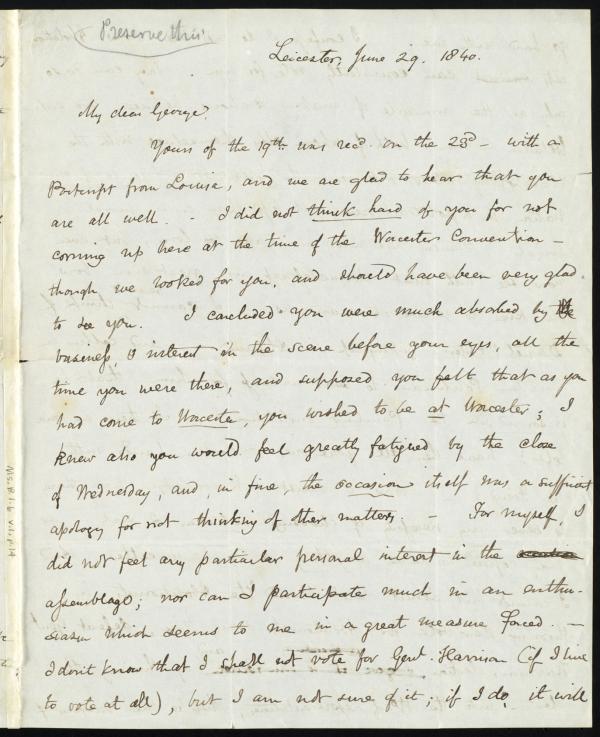 Preserve this
Leicester, June 29. 1840.
My dear George,
Yours of the 19th was recd. on the 23d - with a
Postscript from Louisa, and we are glad to hear that you
are all well. - I did not think hard of you for not
coming up here at the time of the Worcester Convention -
though we looked for you, and should have been very glad
to see you. I concluded you were much absorbed by the
business, & interest in the scene before your eyes, all the
time you were there, and supposed you felt that as you
had come to Worcester, you wished to be at Worcester; I
knew also you would feel greatly fatigued by the close
of Wednesday, and, in fine, the occasion itself was a sufficient
apology for not thinking of other matters. - For myself, I
did not feel any particular personal interest in the
assemblage; nor can I participate much in an enthu-
siasm which seems to me in a great measure forced. -
I don't know that I shall not vote for Genl. Harrison (if I live
to vote at all), but I am not sure of it; if I do, it will
Ms.B.1.6 v.1, p.14